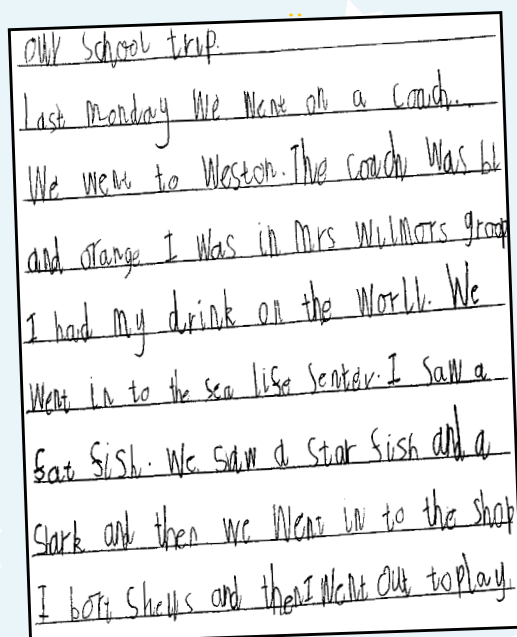 our School trip.
Last monday We Went on a Coach.
We went to Weston. The coach Was bl
and orange I Was in mrs Wilmors groop
I had my drink on the worll. We
Went in to the sea life Senter. I saw a
fat fish. We saw a Star fish and a
Slark and then we Went in to the shop
I bort Shells and then I Went out to play.